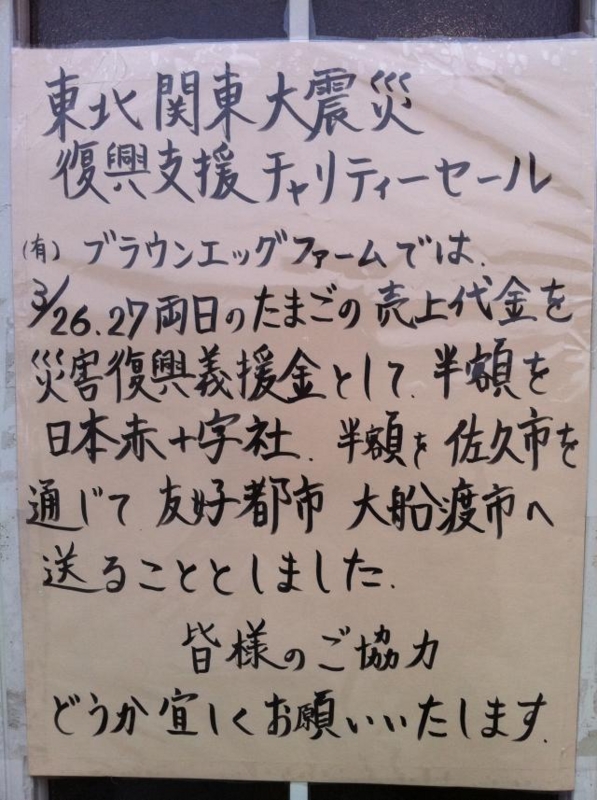 東北関東大震災
復興支援チャリティーセール
(有)ブラウンエッグファームでは、
3/26.27両日のたまごの売上代金を
災害復興義援金として、半額を
日本赤十字社、半額を佐久市を
通じて友好都市 大船渡市へ
送ることとしました。
皆様のご協力
どうか宜しくお願いいたします。